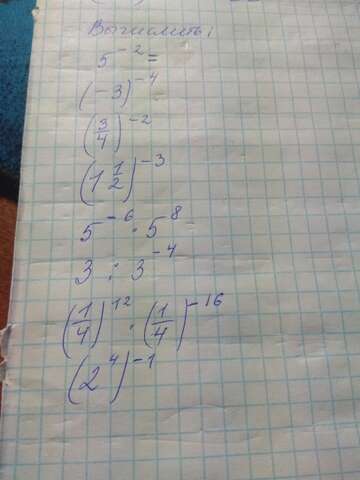 Вычислить:
5^-2 =
(-3)^-4
(3/4)^-2
(1 1/2)^-3
5^-6 · 5^8
3 : 3^-4
(1/4)^12 · (1/4)^-16
(2^4)^-1